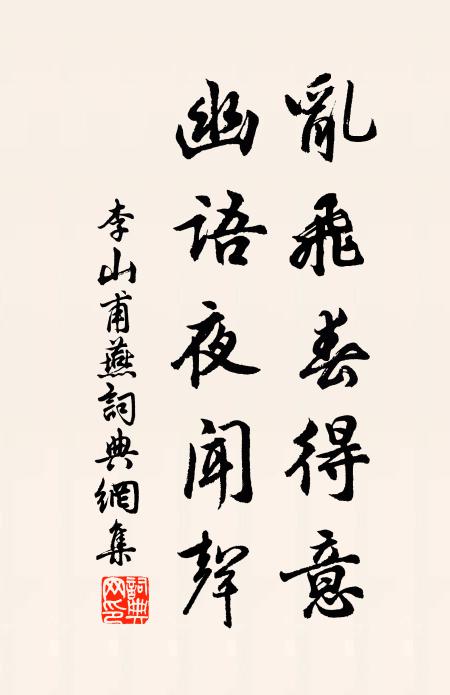 亂飛春得意
幽語夜聞聲
李山甫燕詞典網集
詞典網印